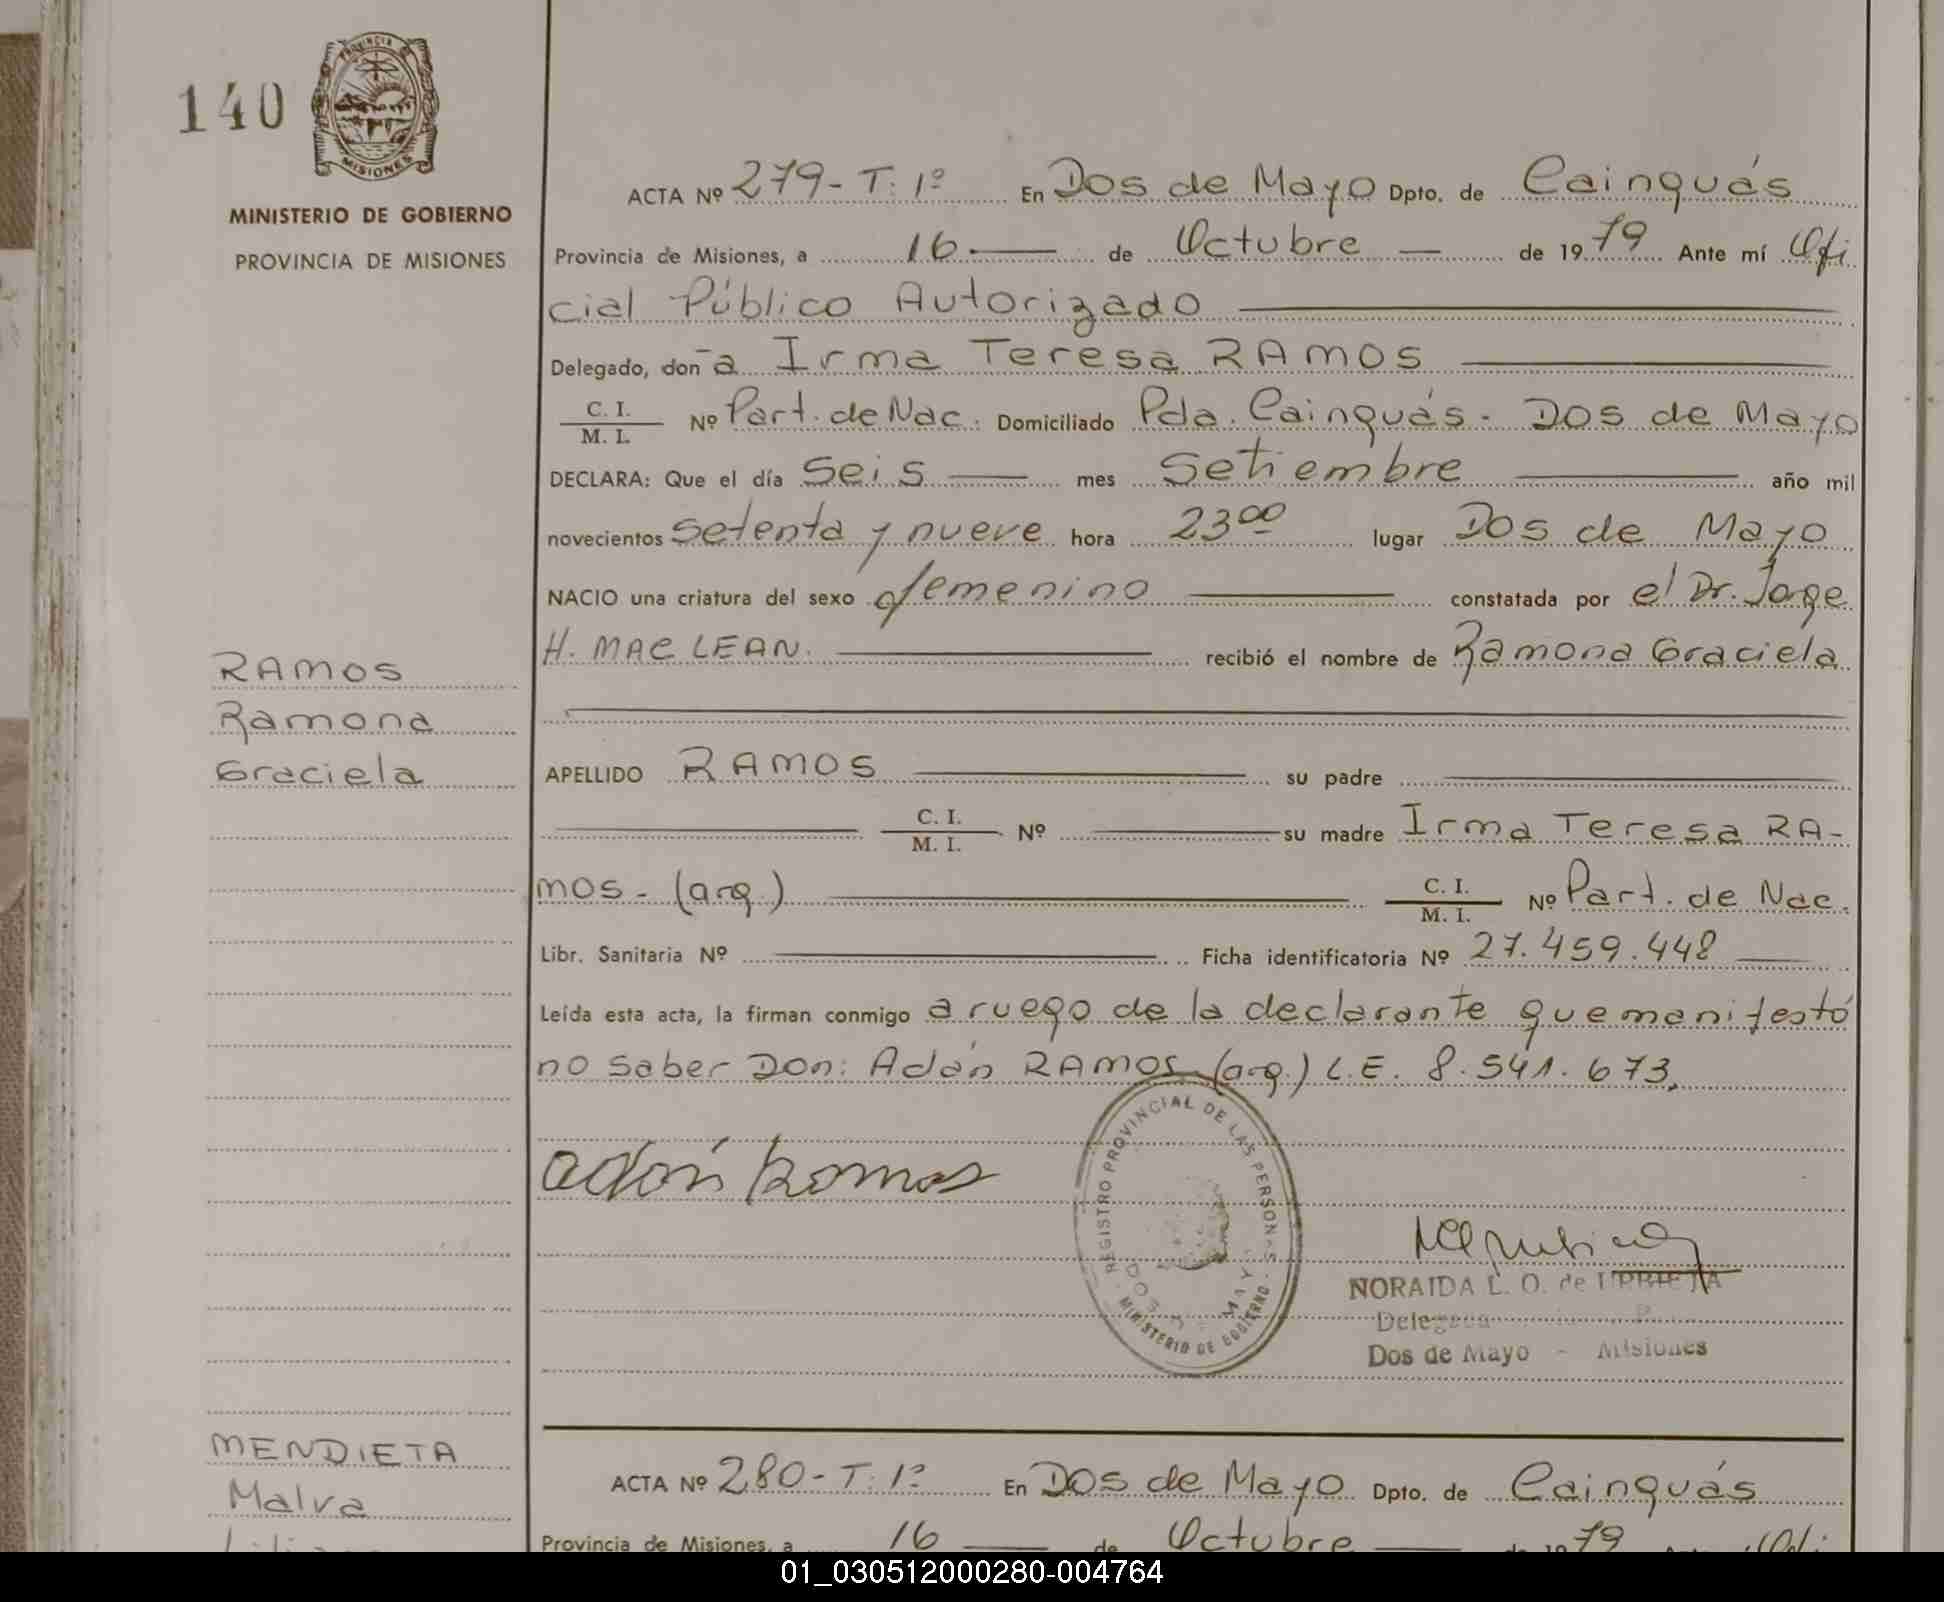 140
PROVINCIA DE MISIONES
MINISTERIO DE GOBIERNO
PROVINCIA DE MISIONES
ACTA Nº 279-T: 1º En Dos de Mayo Dpto. de Cainguás
Provincia de Misiones, a 16 de Octubre de 1979 Ante mí Ofi
cial Público Autorizado
Delegado, don-a Irma Teresa RAMOS
C. I.
M. I. Nº Part. de Nac. Domiciliado Pda. Cainguás - Dos de Mayo
DECLARA: Que el día Seis mes Setiembre año mil
novecientos setenta y nueve hora 23⁰⁰ lugar Dos de Mayo
NACIO una criatura del sexo femenino constatada por el Dr. Jorge
H. MAC LEAN. recibió el nombre de Ramona Graciela
RAMOS
Ramona
Graciela
APELLIDO RAMOS su padre
C. I.
M. I. Nº su madre Irma Teresa RA-
MOS - (arg.) C. I.
M. I. Nº Part. de Nac.
Libr. Sanitaria Nº Ficha identificatoria Nº 27.459.448
Leída esta acta, la firman conmigo a ruego de la declarante que manifestó
no saber Don: Adán RAMOS (arg.) L.E. 8.541.673,
REGISTRO PROVINCIAL DE LAS PERSONAS
DOS MAYO
MINISTERIO DE GOBIERNO
Adán Ramos
NORAIDA L. O. de URRIETA
Delegada
Dos de Mayo - Misiones
MENDIETA
Malva
ACTA Nº 280-T: 1º En Dos de Mayo Dpto. de Cainguás
Provincia de Misiones, a 16 de Octubre de 1979 Ofi
01_030512000280-004764